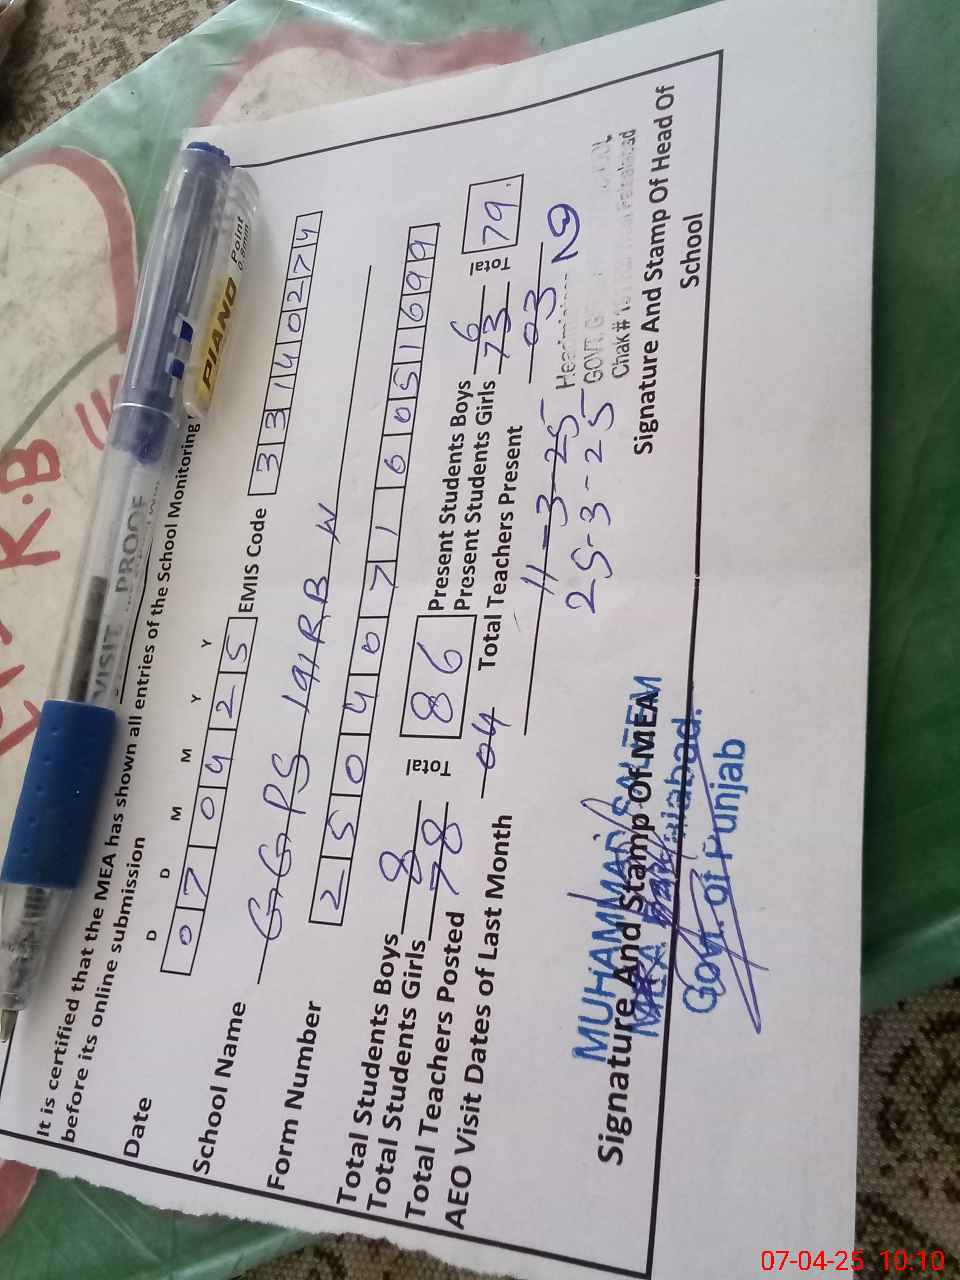 K.B
PIANO Point
0.8mm
VISIT PROOF
It is certified that the MEA has shown all entries of the School Monitoring
before its online submission
D D M M Y Y
Date 0 7 0 4 2 5 EMIS Code 3 3 1 4 0 2 7 4
School Name GGPS 191 RB W
Form Number 2 5 0 4 0 7 1 6 0 5 1 6 9 9
Total Students Boys 8 Total 86 Present Students Boys 6 Total 79
Total Students Girls 78 Present Students Girls 73
Total Teachers Posted 04 Total Teachers Present 03
AEO Visit Dates of Last Month 11-3-25
25-3-25
Headmistress
GOVT. G
Chak#
MUHAMMAD SALEEM
Signature And Stamp Of MEA
Govt. of Punjab
Signature And Stamp Of Head Of
School
07-04-25 10:10